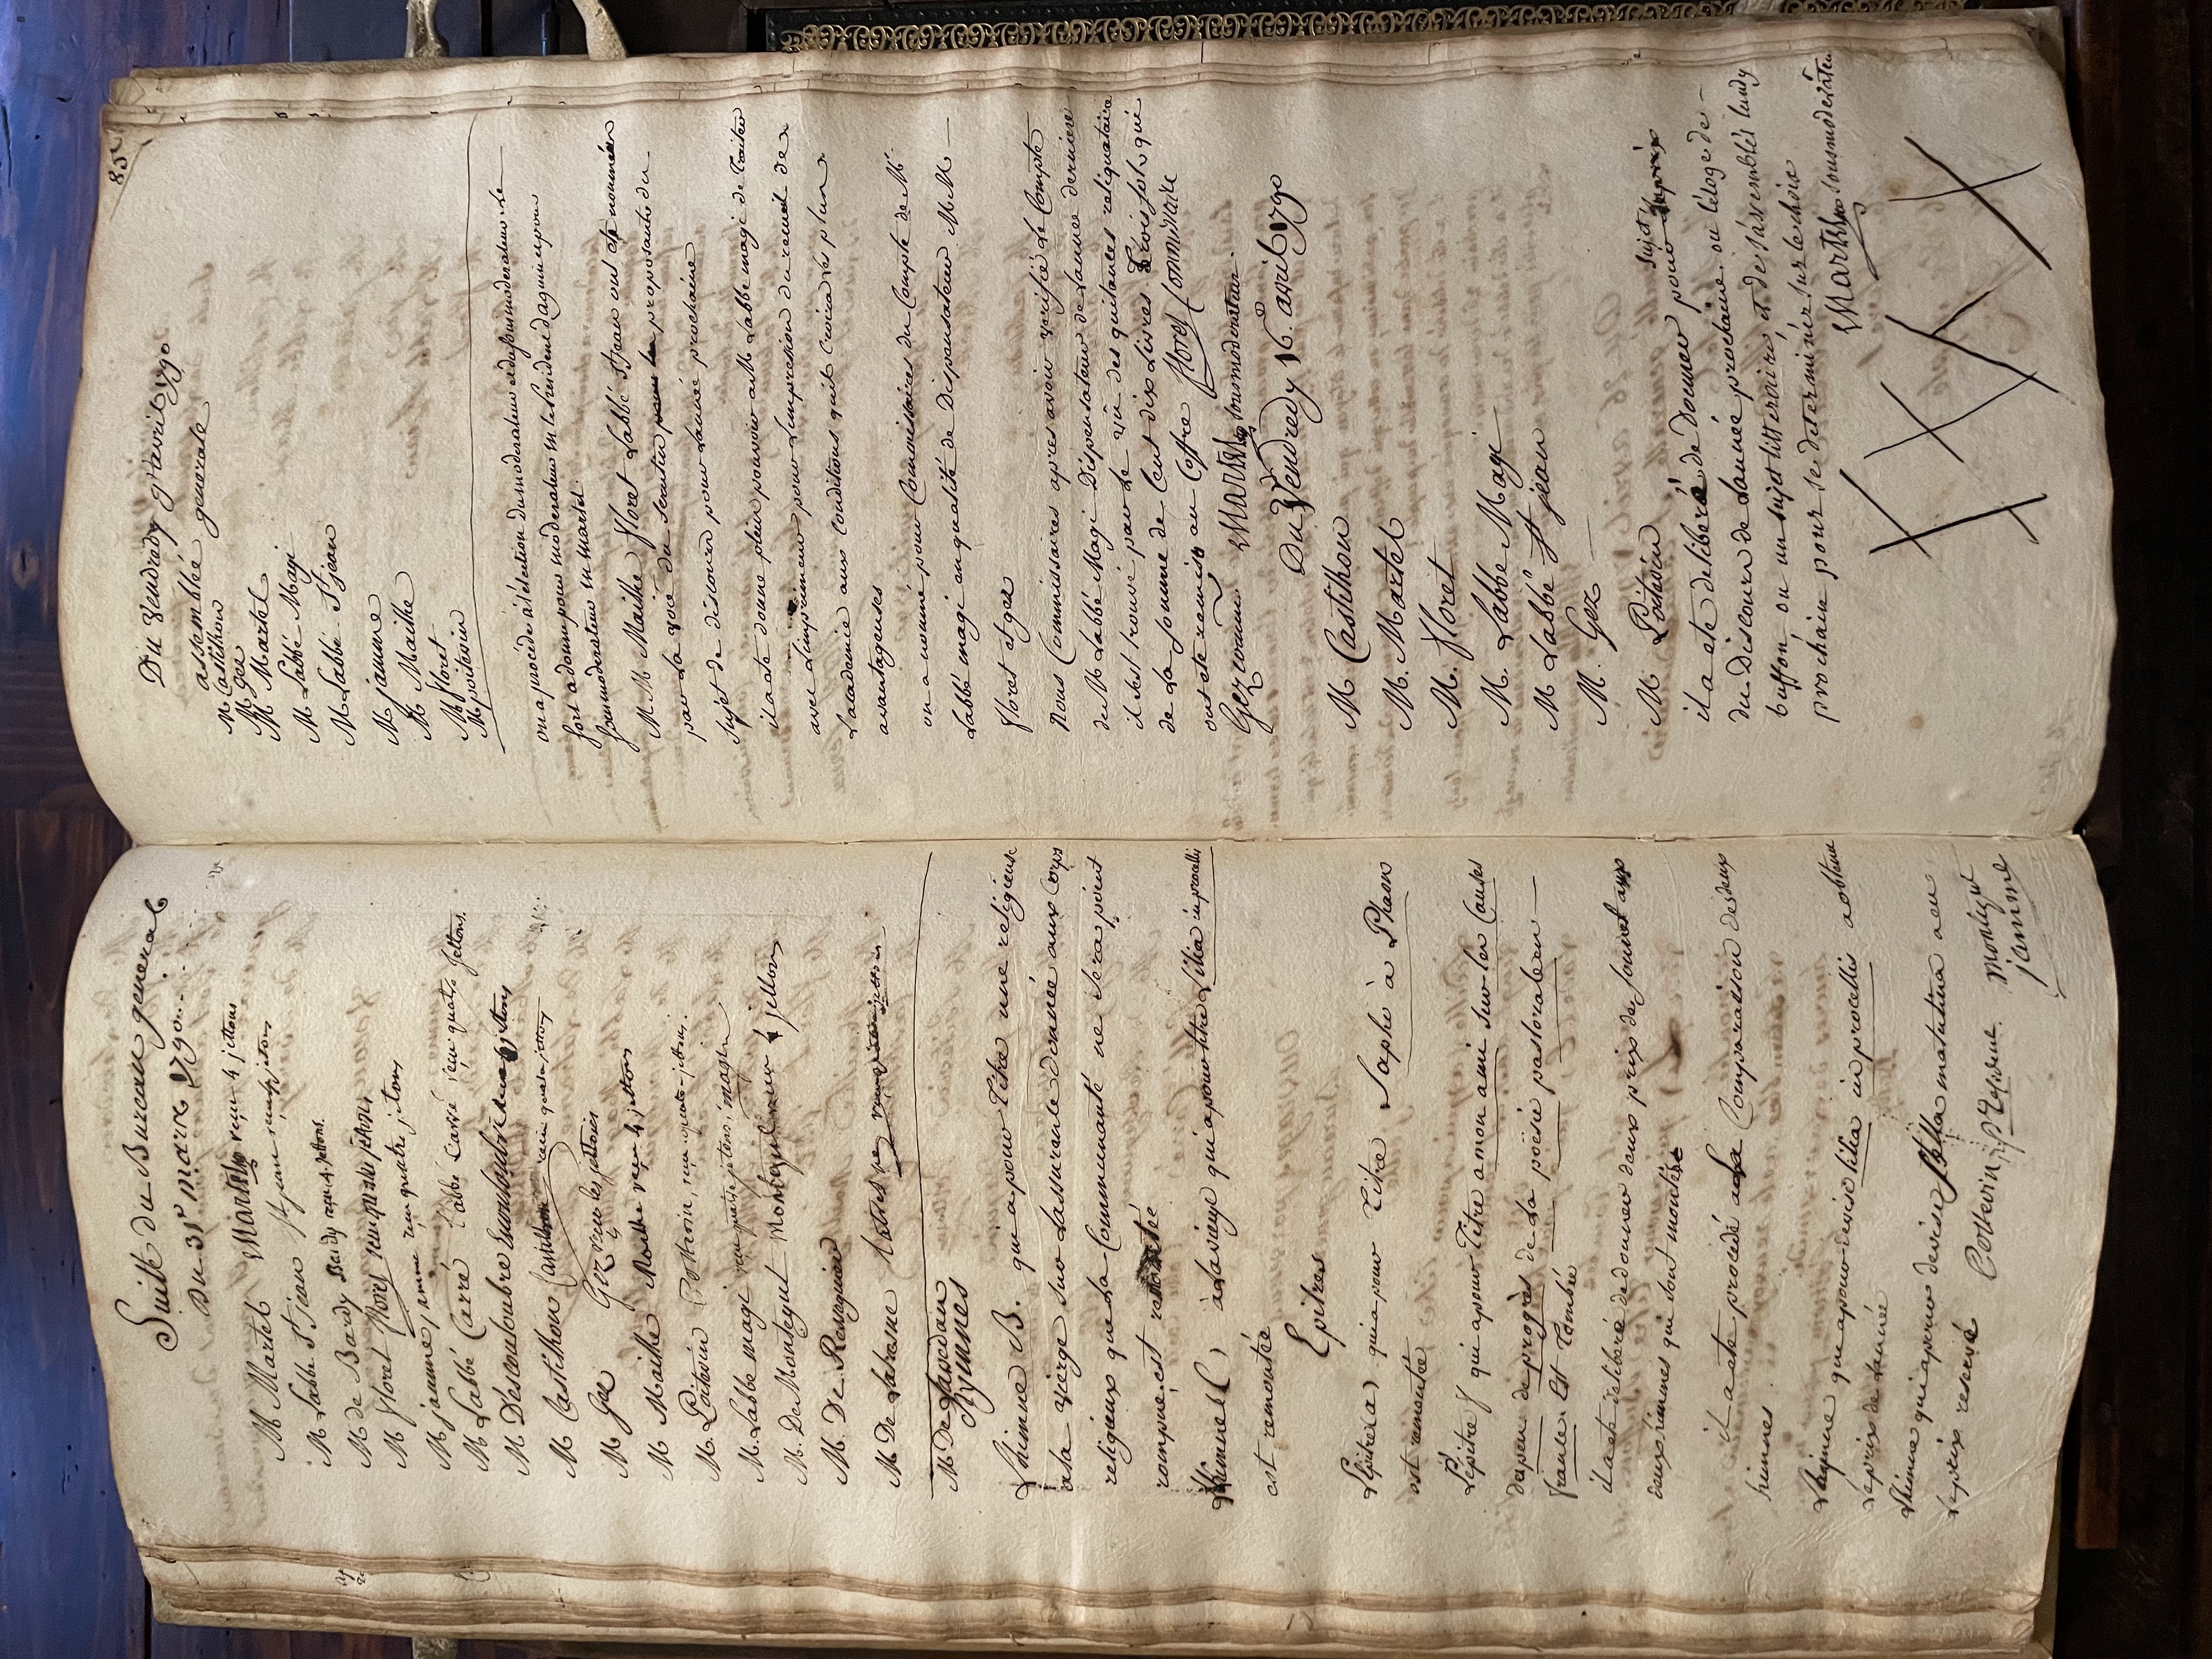 Suitte du Bureau general
du 31e mars 1790...
M Martel Martel reçu 4 jettons
M Labbé St jean St jean reçu jetons
M de Bardy Bardy reçu 4 jettons.
M floret floret reçu quatre jettons
M jamme jamme reçu quatre jetons
M Labbé Carré l'abbé Carré reçu quatre jettons.
M Descouloubre
M Castilhon Castilhon reçu quatre jettons
M Gez Gez reçu les jettons
4
M Mailhe Mailhe reçu 4 jettons
M. Poitevin Poitevin, reçu quatre jettons.
M. Labbé magi reçu quatre jetons, magi
M. De Montegut Montegut reçu 4 jettons
M. De Ressseguier
M De Lavedan
himnes
L'himne B. qui a pour titre une religieuse
a la vierge sur l'assurance donnée aux corps
religieux que la Communauté ne sera point
rompue est remontée
L'himne C, à la vierge qui a pour titre Lilia in procellis
est remontée
Epitres
L'épitre a, qui a pour titre Sapho à Phaon
est remontée
L'épitre f qui a pour titre a mon ami sur les Causes
du peu de progrès de la poësie pastorale en
france. Est Tombée
il a été deliberé de donner deux prix des
deux himnes qui sont montées
il a ete procedé a la Comparaison des deux
himnes.
L'himne qui a pour devise lilia in procellis a obtenu
le prix de l'année
L'himne qui a pour devise stella matutina a eu
le prix reservé Poitevin, p. secretaire. Montegut
jamme
85
Du Vendredy 9 avril 1790
assemblée generale
M Castilhon
M gez
M Martel
M Labbé Magi
M Labbé St jean
M jamme
M Mailhe
M floret
M poitevin
on a procédé à l'élection du moderateur et du sousmoderateur le
sort a donné pour moderateur M le president d'aguin et pour
sousmoderateur M martel.
M.M Mailhe floret Labbé St jean ont été nommés
par la voie du scrutin pour proposants du
sujet de discours pour L'année prochaine
il a ete donné plein pouvoir a M Labbé magi de traiter
avec L'imprimeur pour L'impression du recueil de
L'academie aux Conditions qu'il croira les plus
avantageuses
on a nommé pour Commissaires du Compte de M.
Labbé magi en qualité de Dispensateur M.M
floret et gez
Nous Commissaires apres avoir verifié le Compte
du M Labbé Magi Dispensateur de L'année derniere
il s'est trouvé par le vu des quitances reliquataire
de la somme de Cent dix Livres Trois sols qui
ont ete remis au Coffre floret Commissaire
Gez comm. Martel sousmoderateur.
Du Vendredy 16e avril 1790
M Castilhon
M. Martel
M. floret
M. Labbé Magi
M Labbé St jean
M. Gez
M Poitevin
sujet
il a ete deliberé de Donner pour
du Discours de L'année prochaine ou l'éloge de
buffon ou un sujet litteraire et de s'assembler lundy
prochain pour se determiner sur le choix
Martel sousmoderateur